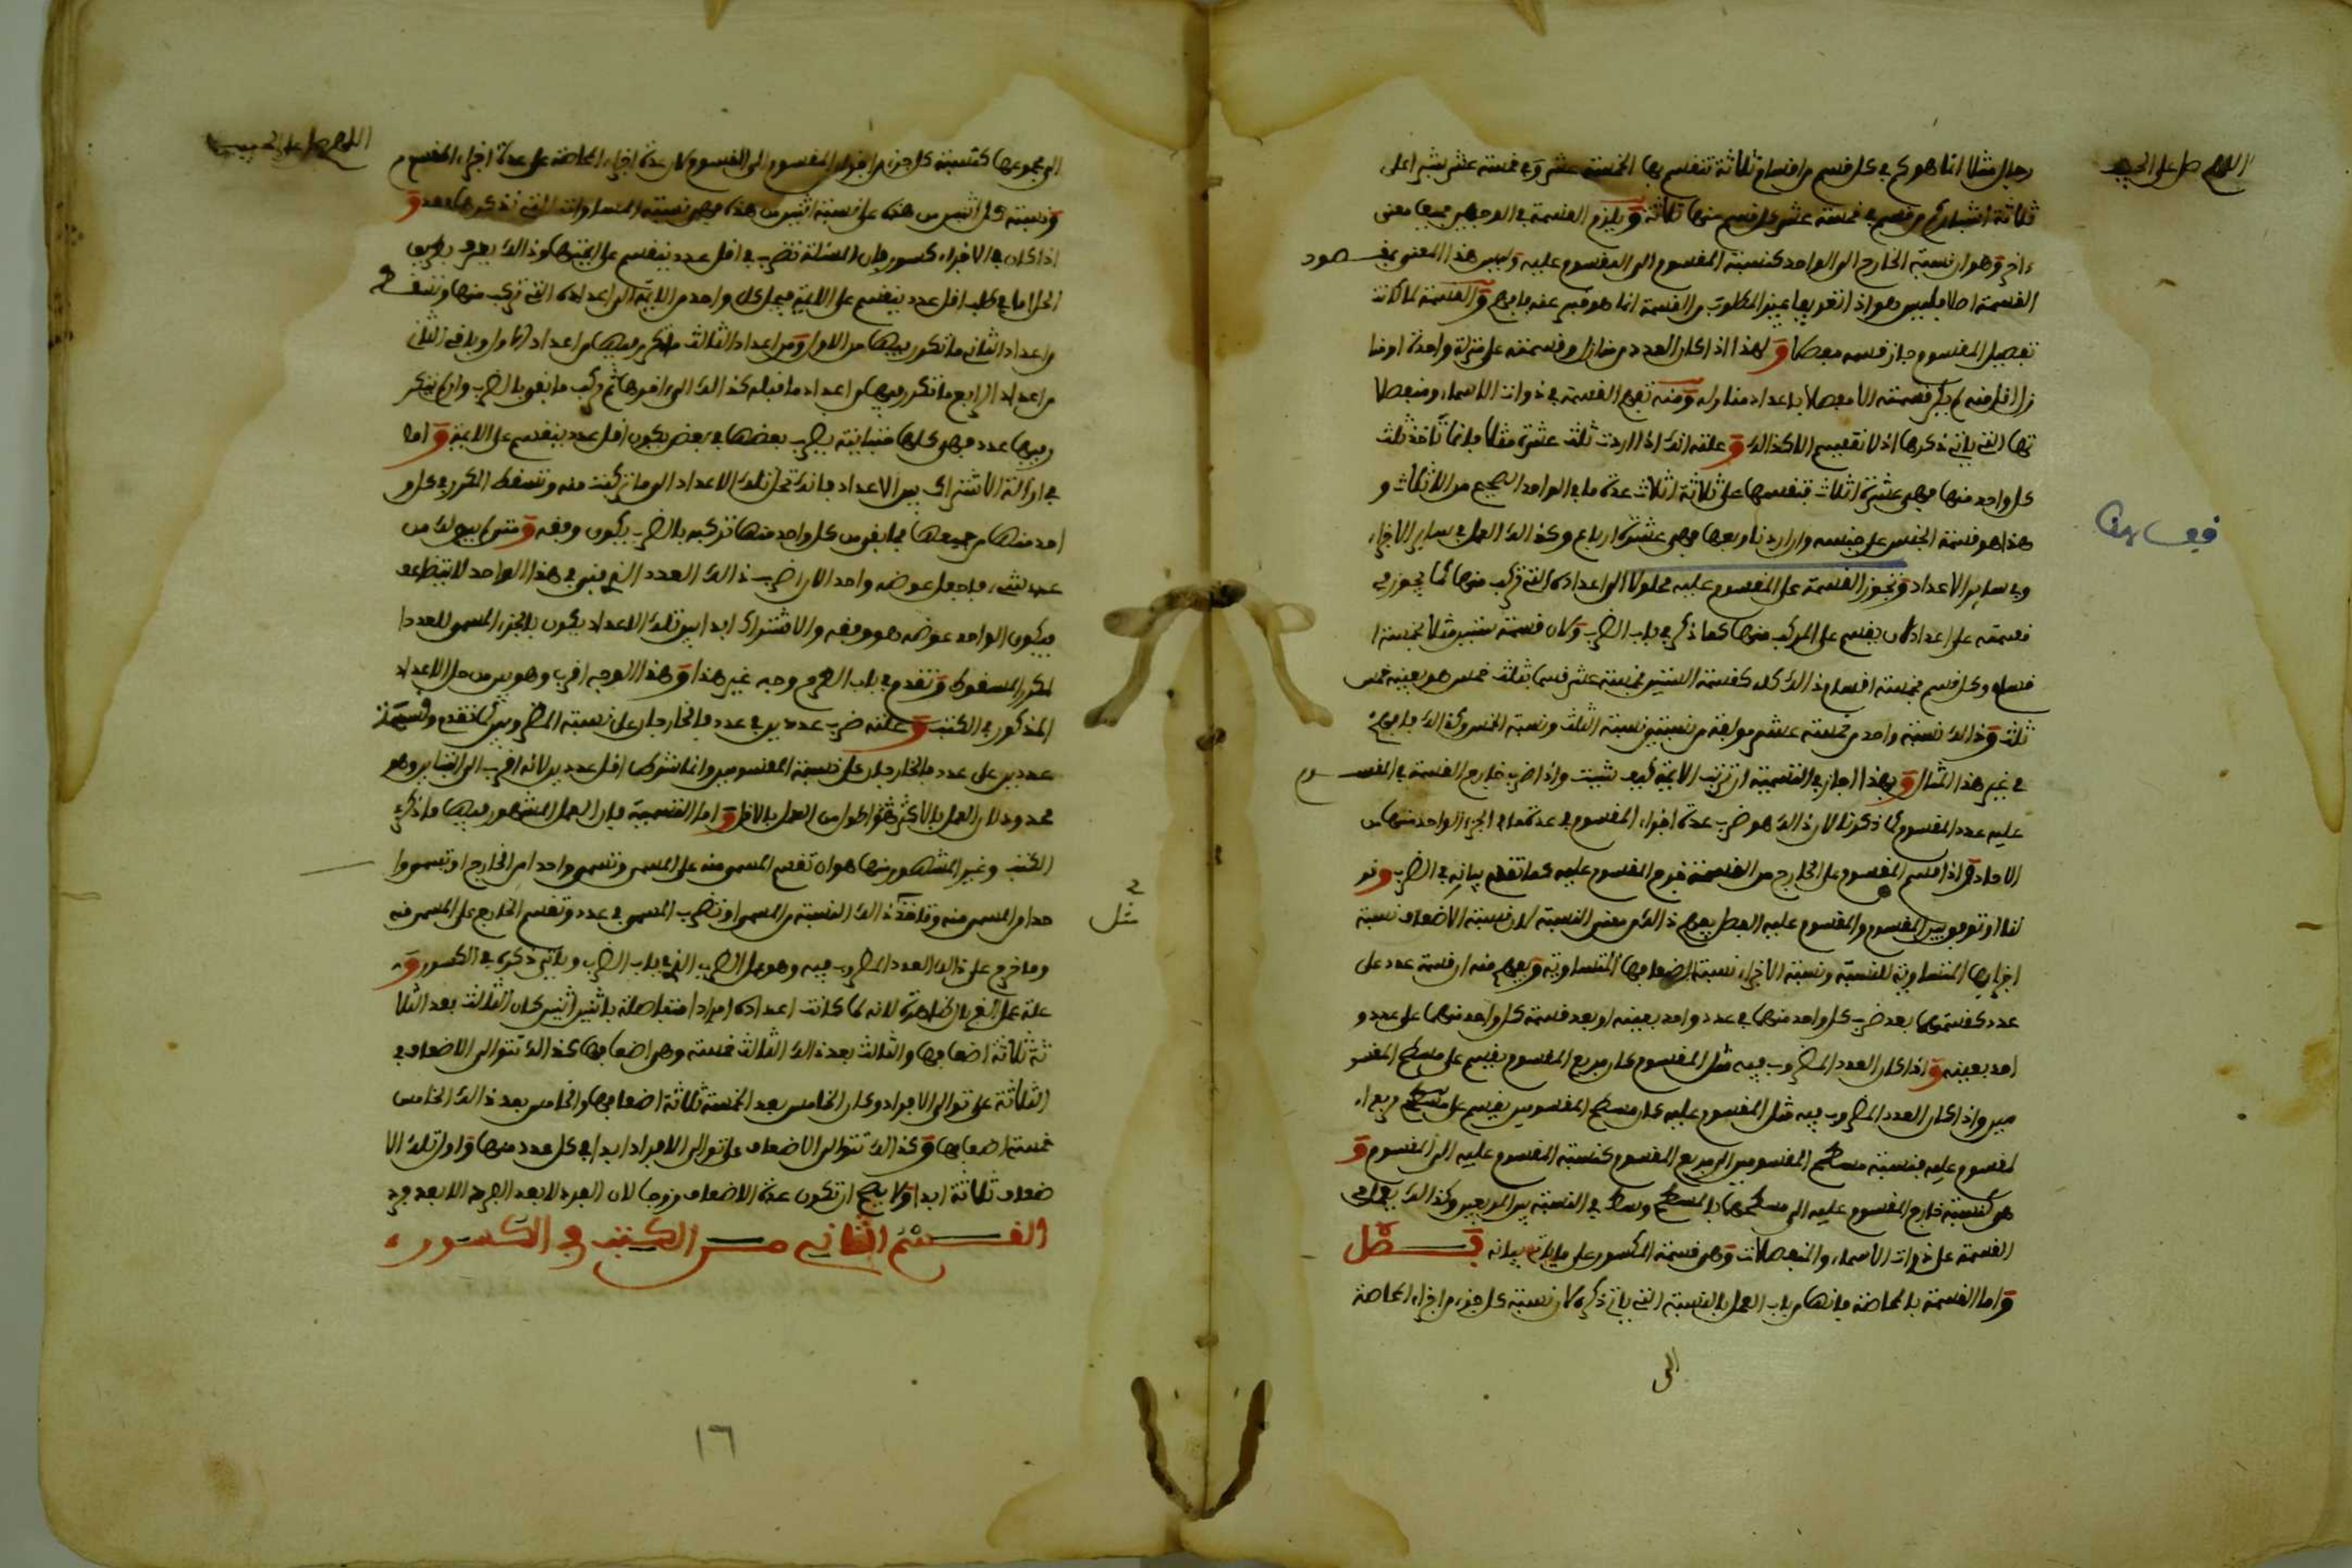 اللهم صل على الحبيب
رجال مثلا انما هو كم في كل قسم من اقسام ثلاثة تنقسم بها الخمسة عشر وفي خمسة عشر بشر اعلى
ثلاثة اشبار كم من قسم في خمسة عشر كل قسم منها ثلاثة ويلزم القسمة في الوجهين جميعا معنى
ءاخر وهو ان نسبة الخارج الى الواحد كنسبة المقسوم الى المقسوم عليه وليس هذا المعنى بمقصود
القسمة اصلا فليس هو اذا تعريفا بعين المطلوب من القسمة انما هو خبر عنه والقسمة لما كانت
تفصيل المقسوم جاز قسمه مفصلا ولهذا اذا كان العدد من منازل وقسمته على منزلة واحدة او منا
زل اقل منه لم يكن قسمته الا مفصلا باعداد منازله ومنه تفهم القسمة في ذوات الاسماء ومنفصلا
تها التي ياتي ذكرها اذ لا تنقسم الا كذلك وعلته انك اذا اردت ثلث عشرة مثلا فانما تاخذ ثلث
كل واحد منها فهي عشرة اثلاث فتقسمها على ثلاثة اثلاث عدة ما في الواحد الصحيح من الاثلاث و
هذا هو قسمة الجنس على جنسه وان اردنا ربعها فهي عشرة ارباع وكذلك العمل في ساير الاجزاء
وفي ساير الاعداد وتجوز القسمة على المقسوم عليه محلولا الى اعداده التي تركب منها كما يجوز في
قسمته على اعداد ان يقسم على المركب منها كما ذكر في باب الضرب وكان قسمة ستين مثلا بخمسة ا
قسام وكل قسم بخمسة اقسام ذلك كله كقسمة الستين بخمسة عشر قسما فثلث خمس هو بعينه خمس
ثلث وذلك نسبة واحد من خمسة عشر مولفة من نسبتين نسبة الثلث ونسبة الخمس وكذلك فافهم
في غير هذا المثال وبهذا جاز في التسمية ان ترتب الايمة كيف شيت واذا ضرب خارج القسمة في المقسوم
عليه عدد المقسوم كما ذكرنا لان ذلك هو ضرب عدة اجزاء المقسوم في عدة ما في الجزء الواحد منها من
الاحاد واذا قسم المقسوم على الخارج من القسمة خرج المقسوم عليه كما تقدم بيانه في الضرب وقو
لنا او توفق بين المقسوم والمقسوم عليه الفصل يفهم ذلك من معنى النسبة لان نسبة الاضعاف نسبة
اجزايها المتساوية للنسبة ونسبة الاجزاء نسبة اضعافها المتساوية ويفهم منه ان قسمة عدد على
عدد كقسمتهما بعد ضرب كل واحد منهما في عدد واحد بعينه او بعد قسمة كل واحد منهما على عدد و
احد بعينه واذا كان العدد المضروب فيه مثل المقسوم كان مربع المقسوم يقسم على مسطح المقسو
مين واذا كان العدد المضروب فيه مثل المقسوم عليه كان مسطح المقسومين يقسم على مربع ا
لمقسوم عليه فنسبة مسطح المقسومين الى مربع المقسوم كنسبة المقسوم عليه الى المقسوم و
هو كنسبة خارج المقسوم عليه الى مسطحهما فالمسطح وسط في النسبة بين المربعين وكذلك يفهم في
القسمة على ذوات الاسماء والمنفصلات وهي قسمة الكسور على ما ياتي بيانه فصل
واما القسمة بالمحاصة فانها من باب العمل بالنسبة التي ياتي ذكره لان نسبة كل جزء من اجزاء المحاصة
الى
اللهم صل على الحبيب
الى مجموعها كنسبة كل جزء من اجزاء المقسوم الى المقسوم لان عدة اجزاء المحاصة على عدة اجزاء المقسوم
ونسبة كل اثنين من هذه على نسبة اثنين من هذه فهي نسبة المتساوات التي نذكرها بعد و
اذا كان في الاجزاء كسور فان المسئلة تضرب في اقل عدد ينقسم على ايمتها وذلك يعرف بطريق
الحل اما في طلب اقل عدد ينقسم على الايمة فيحل كل واحد من الايمة الى اعداده التي تركب منها وتسقط
من اعداد الثاني ما تكرر فيها من الاول ومن اعداد الثالث ما تكرر فيها من اعداد الاول وباقي الثاني
من اعداد الرابع ما تكرر فيها من اعداد ما قبله كذلك الى ءاخرها ثم تركب ما بقي بالضرب وان لم يتكر
ر فيها عدد فهي كلها متباينة يضرب بعضها في بعض يكون اقل عدد ينقسم على الايمة واما
في ازالة الاشتراك بين الاعداد فانك تحل تلك الاعداد الى ما تركبت منه وتسقط المكرر في كل و
احد منها من جميعها فما بقي من كل واحد منها تركبه بالضرب يكون وفقه ومتى لم يبق لك من
عدد شيء فاجعل عوضه واحد الان ضرب ذلك العدد الذي فني في هذا الواحد لا يتضاعف
فيكون الواحد عوضه هو وفقه والاشتراك ابدا بين تلك الاعداد يكون بالجزء المسمى للعدد ا
لمكرر المسقوط وتقدم في باب الطرح وجه غير هذا وهذا الوجه اقرب وهو بين من حل الاعداد
المذكور في الكتب وعلته ضرب عددين في عدد فالخارجان على نسبة المضروبين كما تقدم وقسمة
عددين على عدد فالخارجان على نسبة المقسومين وانما شرطنا اقل عددين لانه اقرب الى التناهي وهو
محدود لان العمل بالاكثر هو اطول من العمل بالاقل واما التسمية فان العمل المشهور فيها ما ذكر في
الكتب وغير المشهور منها هو ان تقسم المسمى منه على المسمى وتسمي واحدا من الخارج او تسمي وا
حدا من المسمى منه وتاخذ ذلك النسبة من المسمى او تضرب المسمى في عدد وتقسم الخارج على المسمى منه
وما خرج على ذلك العدد المضروب فيه وهو مثل الضرب الذي في باب الضرب وياتي ذكره في الكسور و
علة عمل الغربال ظاهرة لانه لما كانت اعداده افرادا متفاضلة باثنين اثنين كان الثالث بعد الثلا
ثة ثلاثة اضعافها والثالث بعد ذلك الثالث خمسة وهي اضعافها كذلك تتوالى الاضعاف في
الثلاثة على توالي الافراد وكان الخامس بعد الخمسة ثلاثة اضعافها والخامس بعد ذلك الخامس
خمسة اضعافها وكذلك تتوالى الاضعاف على توالي الافراد ابدا في كل عدد منها واول تلك الا
ضعاف ثلاثة ابدا ولا يصح ان تكون عدة الاضعاف زوجا لان الفرد لا يعد الفرد الا بعدد فرد
القسم الثاني من الكتب في الكسور
١٦